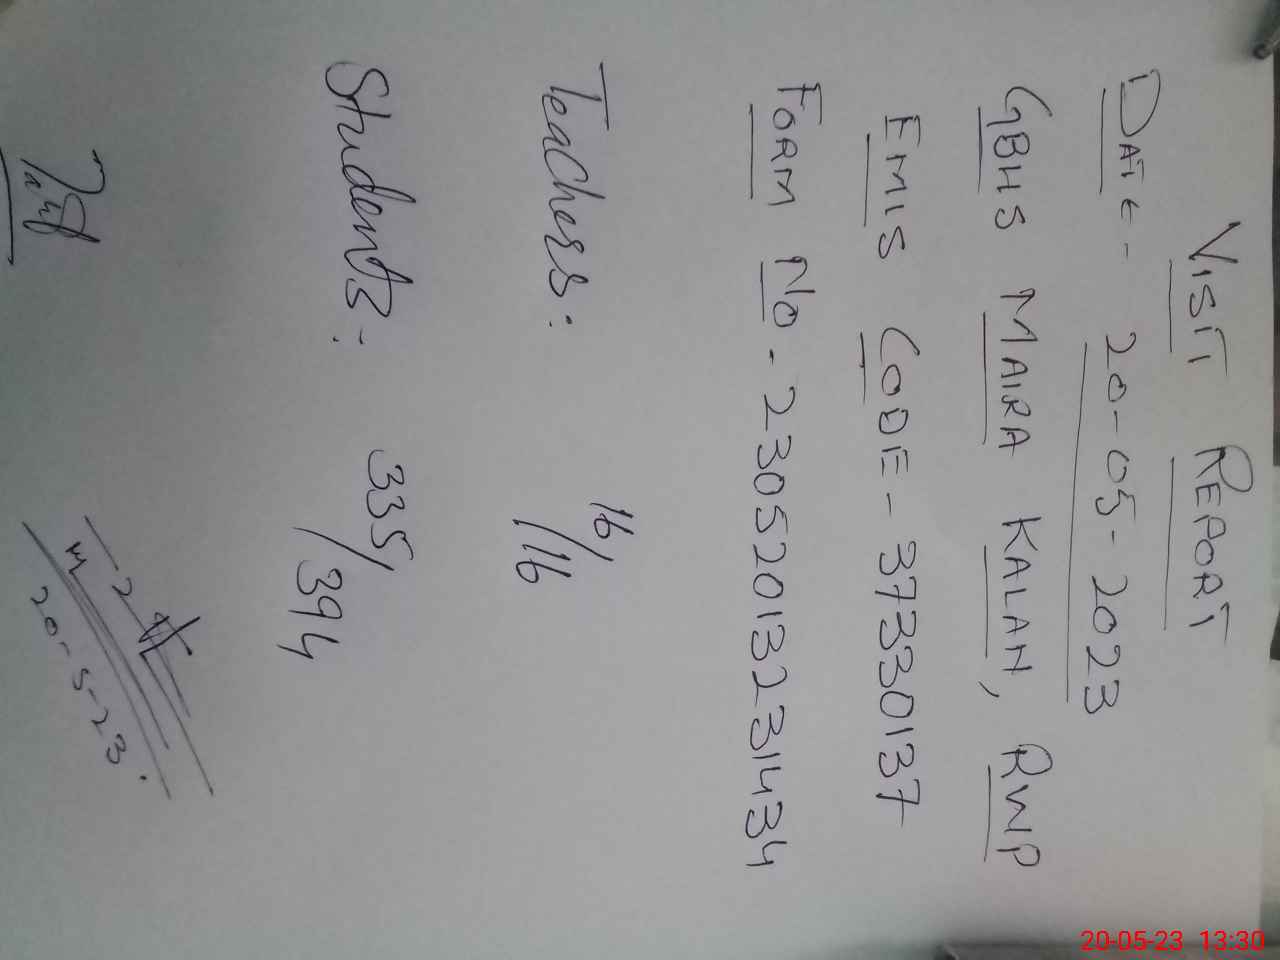 VISIT REPORT
DATE - 20-05-2023
GBHS MAIRA KALAN, RWP
EMIS CODE - 37330137
FORM NO - 23052013231434
Teachers: 16/16
Students: 335/394
20-5-23
20-05-23 13:30